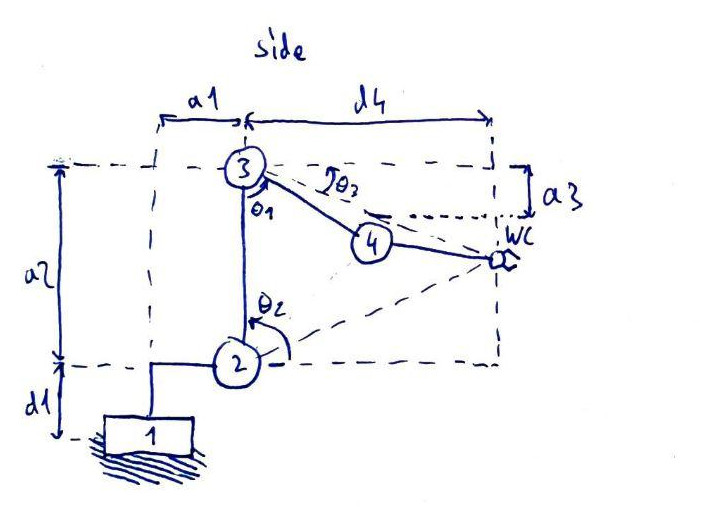 side
a1
d4
3
θ3
a3
θ1
WC
4
a2
θ2
2
d1
1